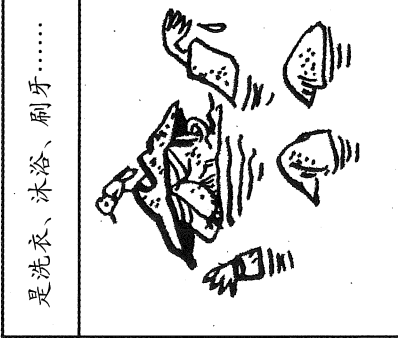 是洗衣、沐浴、刷牙……